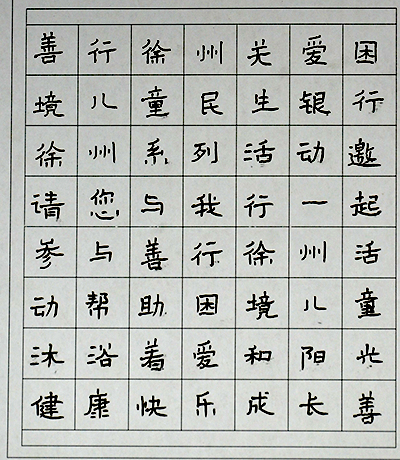 善行徐州关爱困
境儿童民生银行
徐州系列活动邀
请您与我行一起
参与善行徐州活
动帮助困境儿童
沐浴着爱和阳光
健康快乐成长善